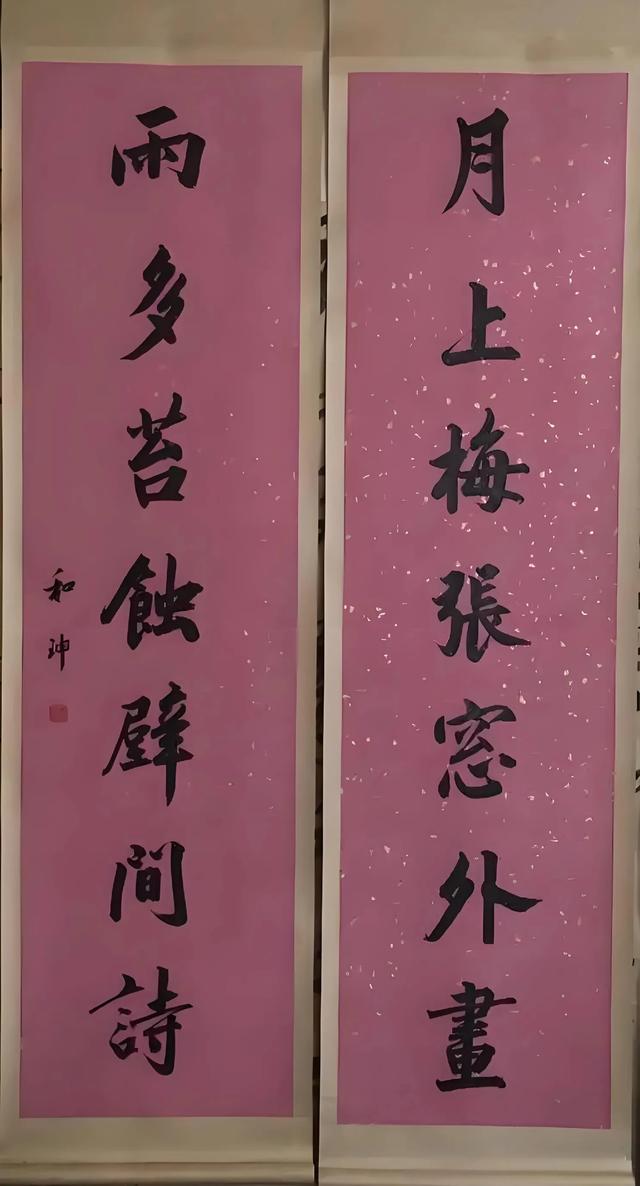 月上梅張窓外畫
雨多苔蝕壁間詩
和珅